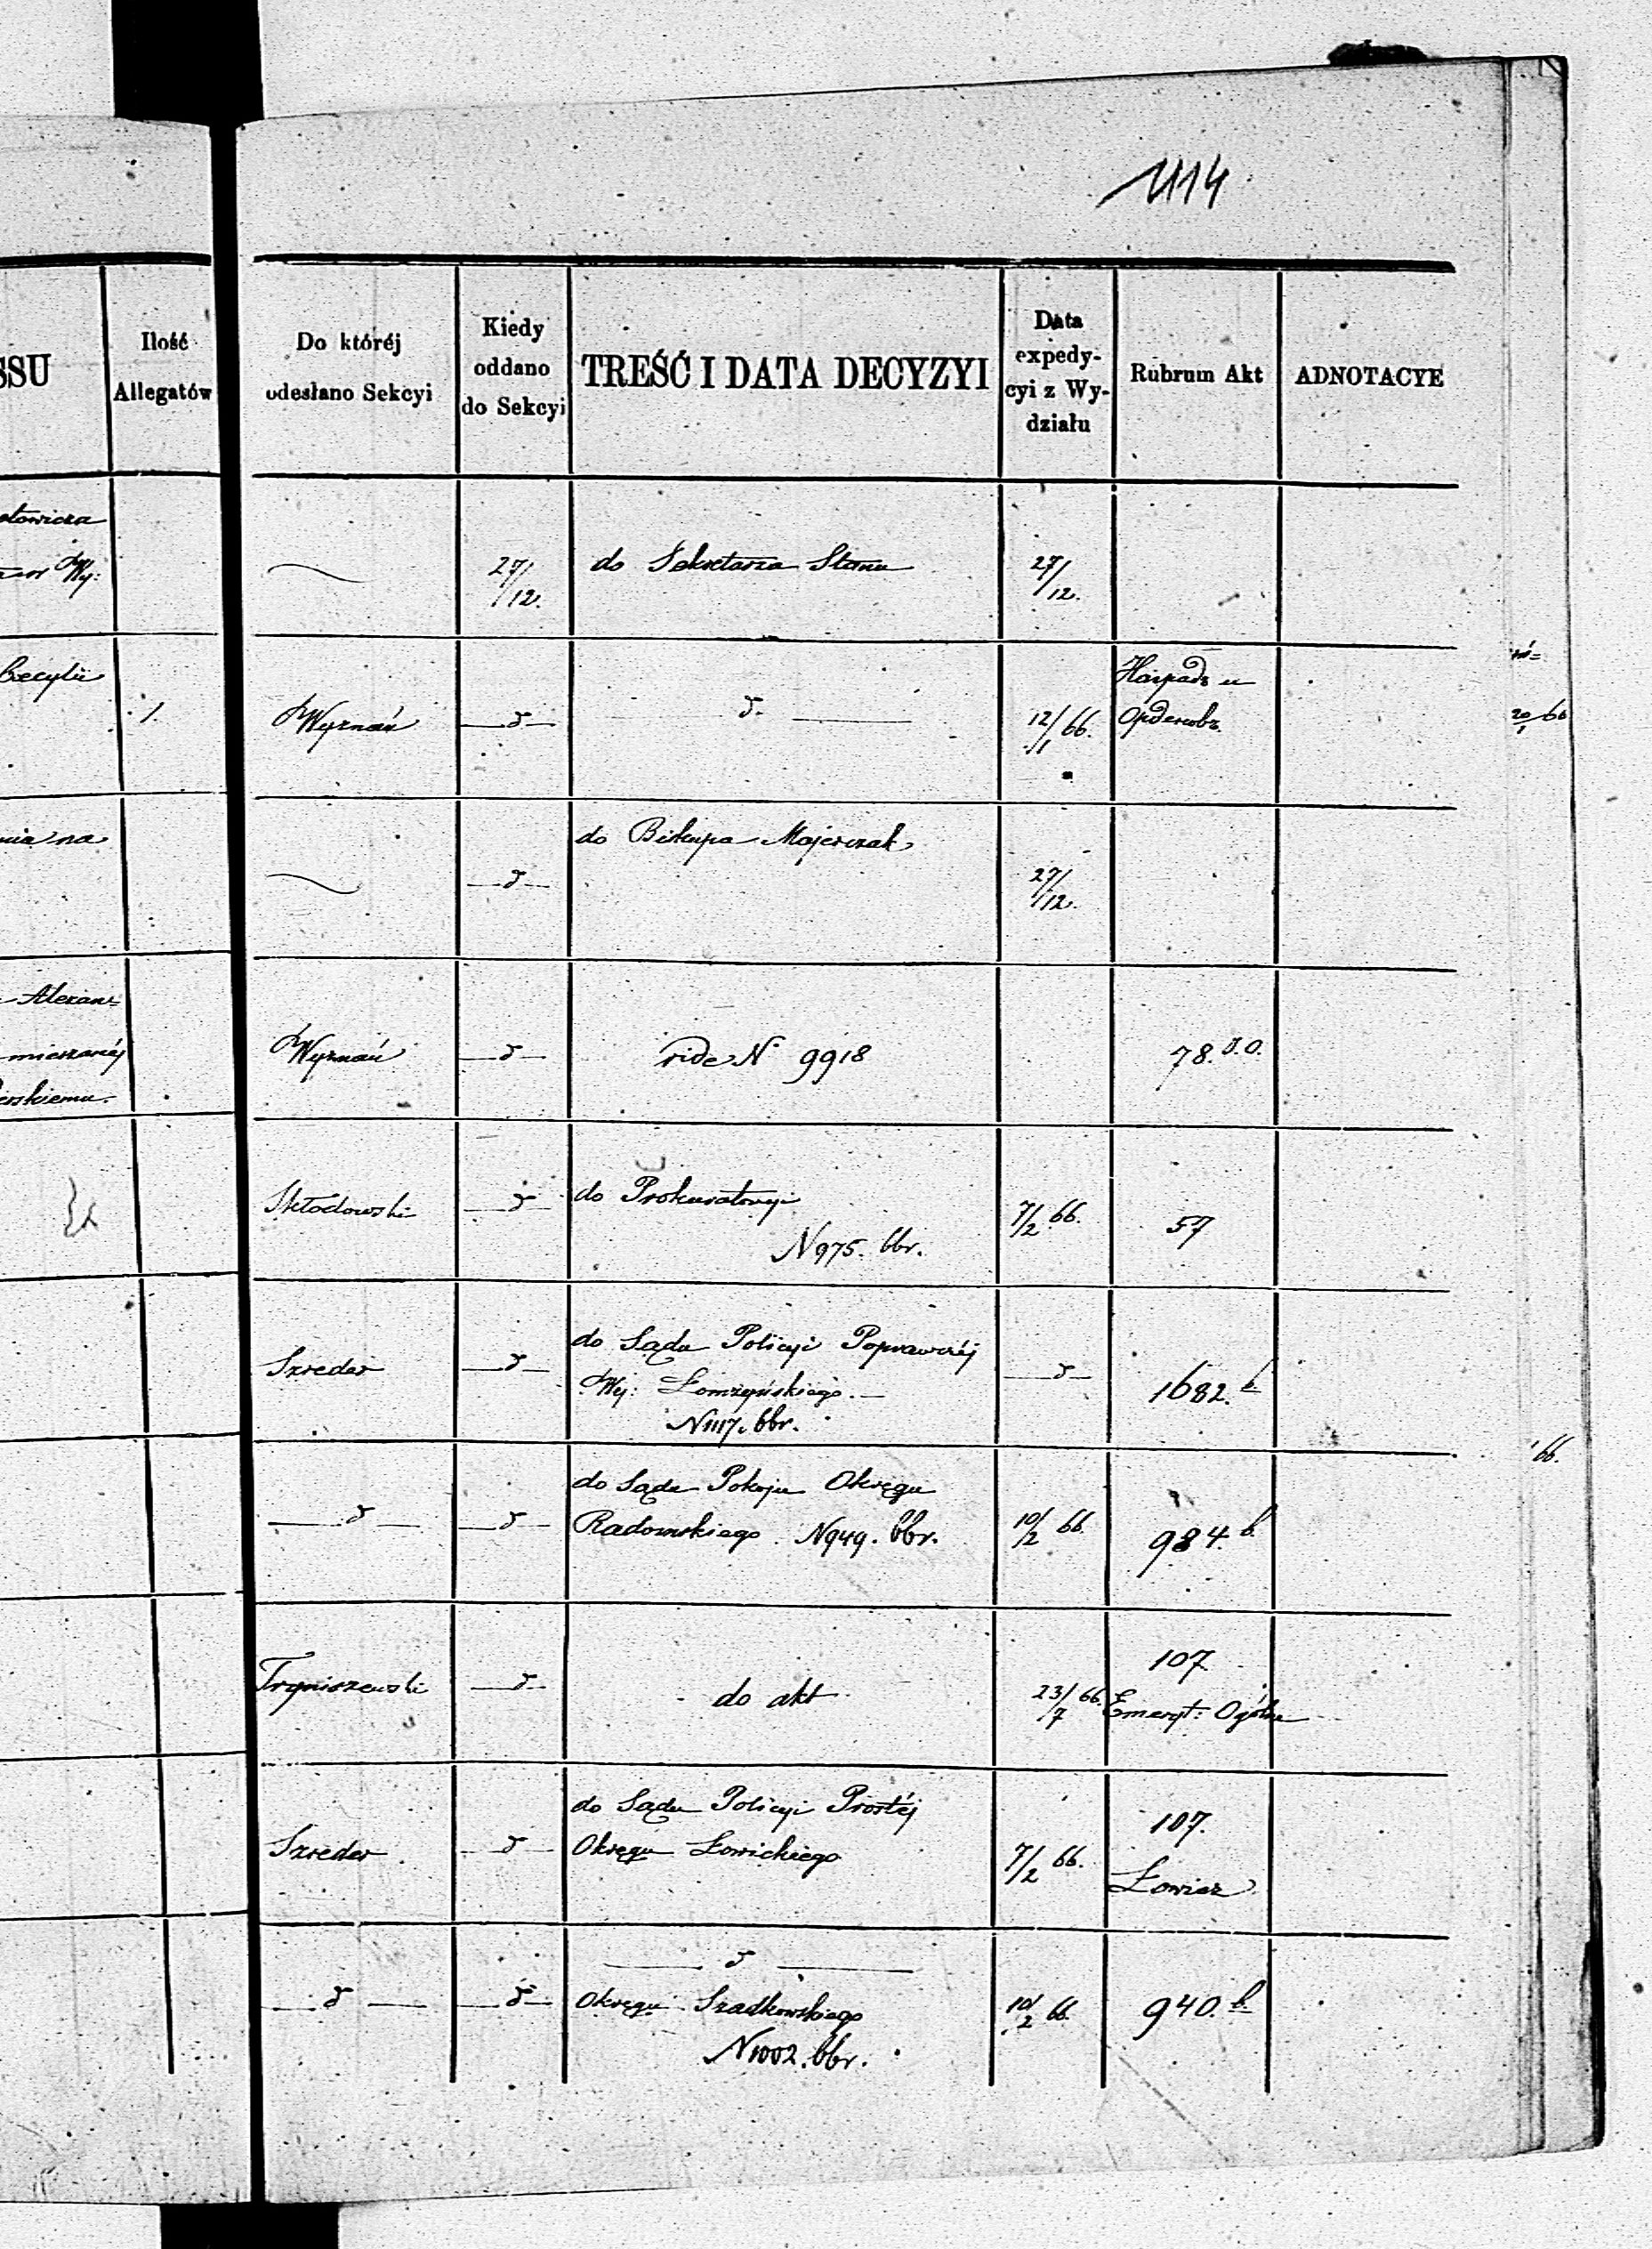 1114
SSU
Ilość
Allegatów
Do któréj
odesłano Sekcyi
Kiedy
oddano
do Sekcyi
TREŚĆ I DATA DECYZYI
Data
expedy-
cyi z Wy-
działu
Rubrum Akt
ADNOTACYE
27/12.
do Sekretarza Stanu
27/12.
Cecylii
1.
Wyznań
d
d
12/1 66.
Наградъ и
Орденовъ.
nia na
d
do Biskupa Majerczak
27/12.
Alexan=
mieszanéj
Wyznań
d
vide N 9918
78. D.O.
erskiemu.
Skłodowski
d
do Prokuratoryi
N 975. bbr.
7/2 66.
57
Szreder
d
do Sądu Policyi Poprawczéj
Wy: Łomżyńskiego.
N 1117. bbr.
d
1682. b
d
d
do Sądu Pokoju Okręgu
Radomskiego. N 949. bbr.
10/2 66.
984. b.
Trymiszewski
d
do akt
23/7 66.
107
Emeryt: Ogólne
Szreder
d
do Sądu Policyi Prostéj
Okręgu Łowickiego
7/2 66.
107.
Łowicz
d
d
d
Okręgu Szadkowskiego
N 1002. bbr.
10/2 66.
940. b.
20/1 66
66.